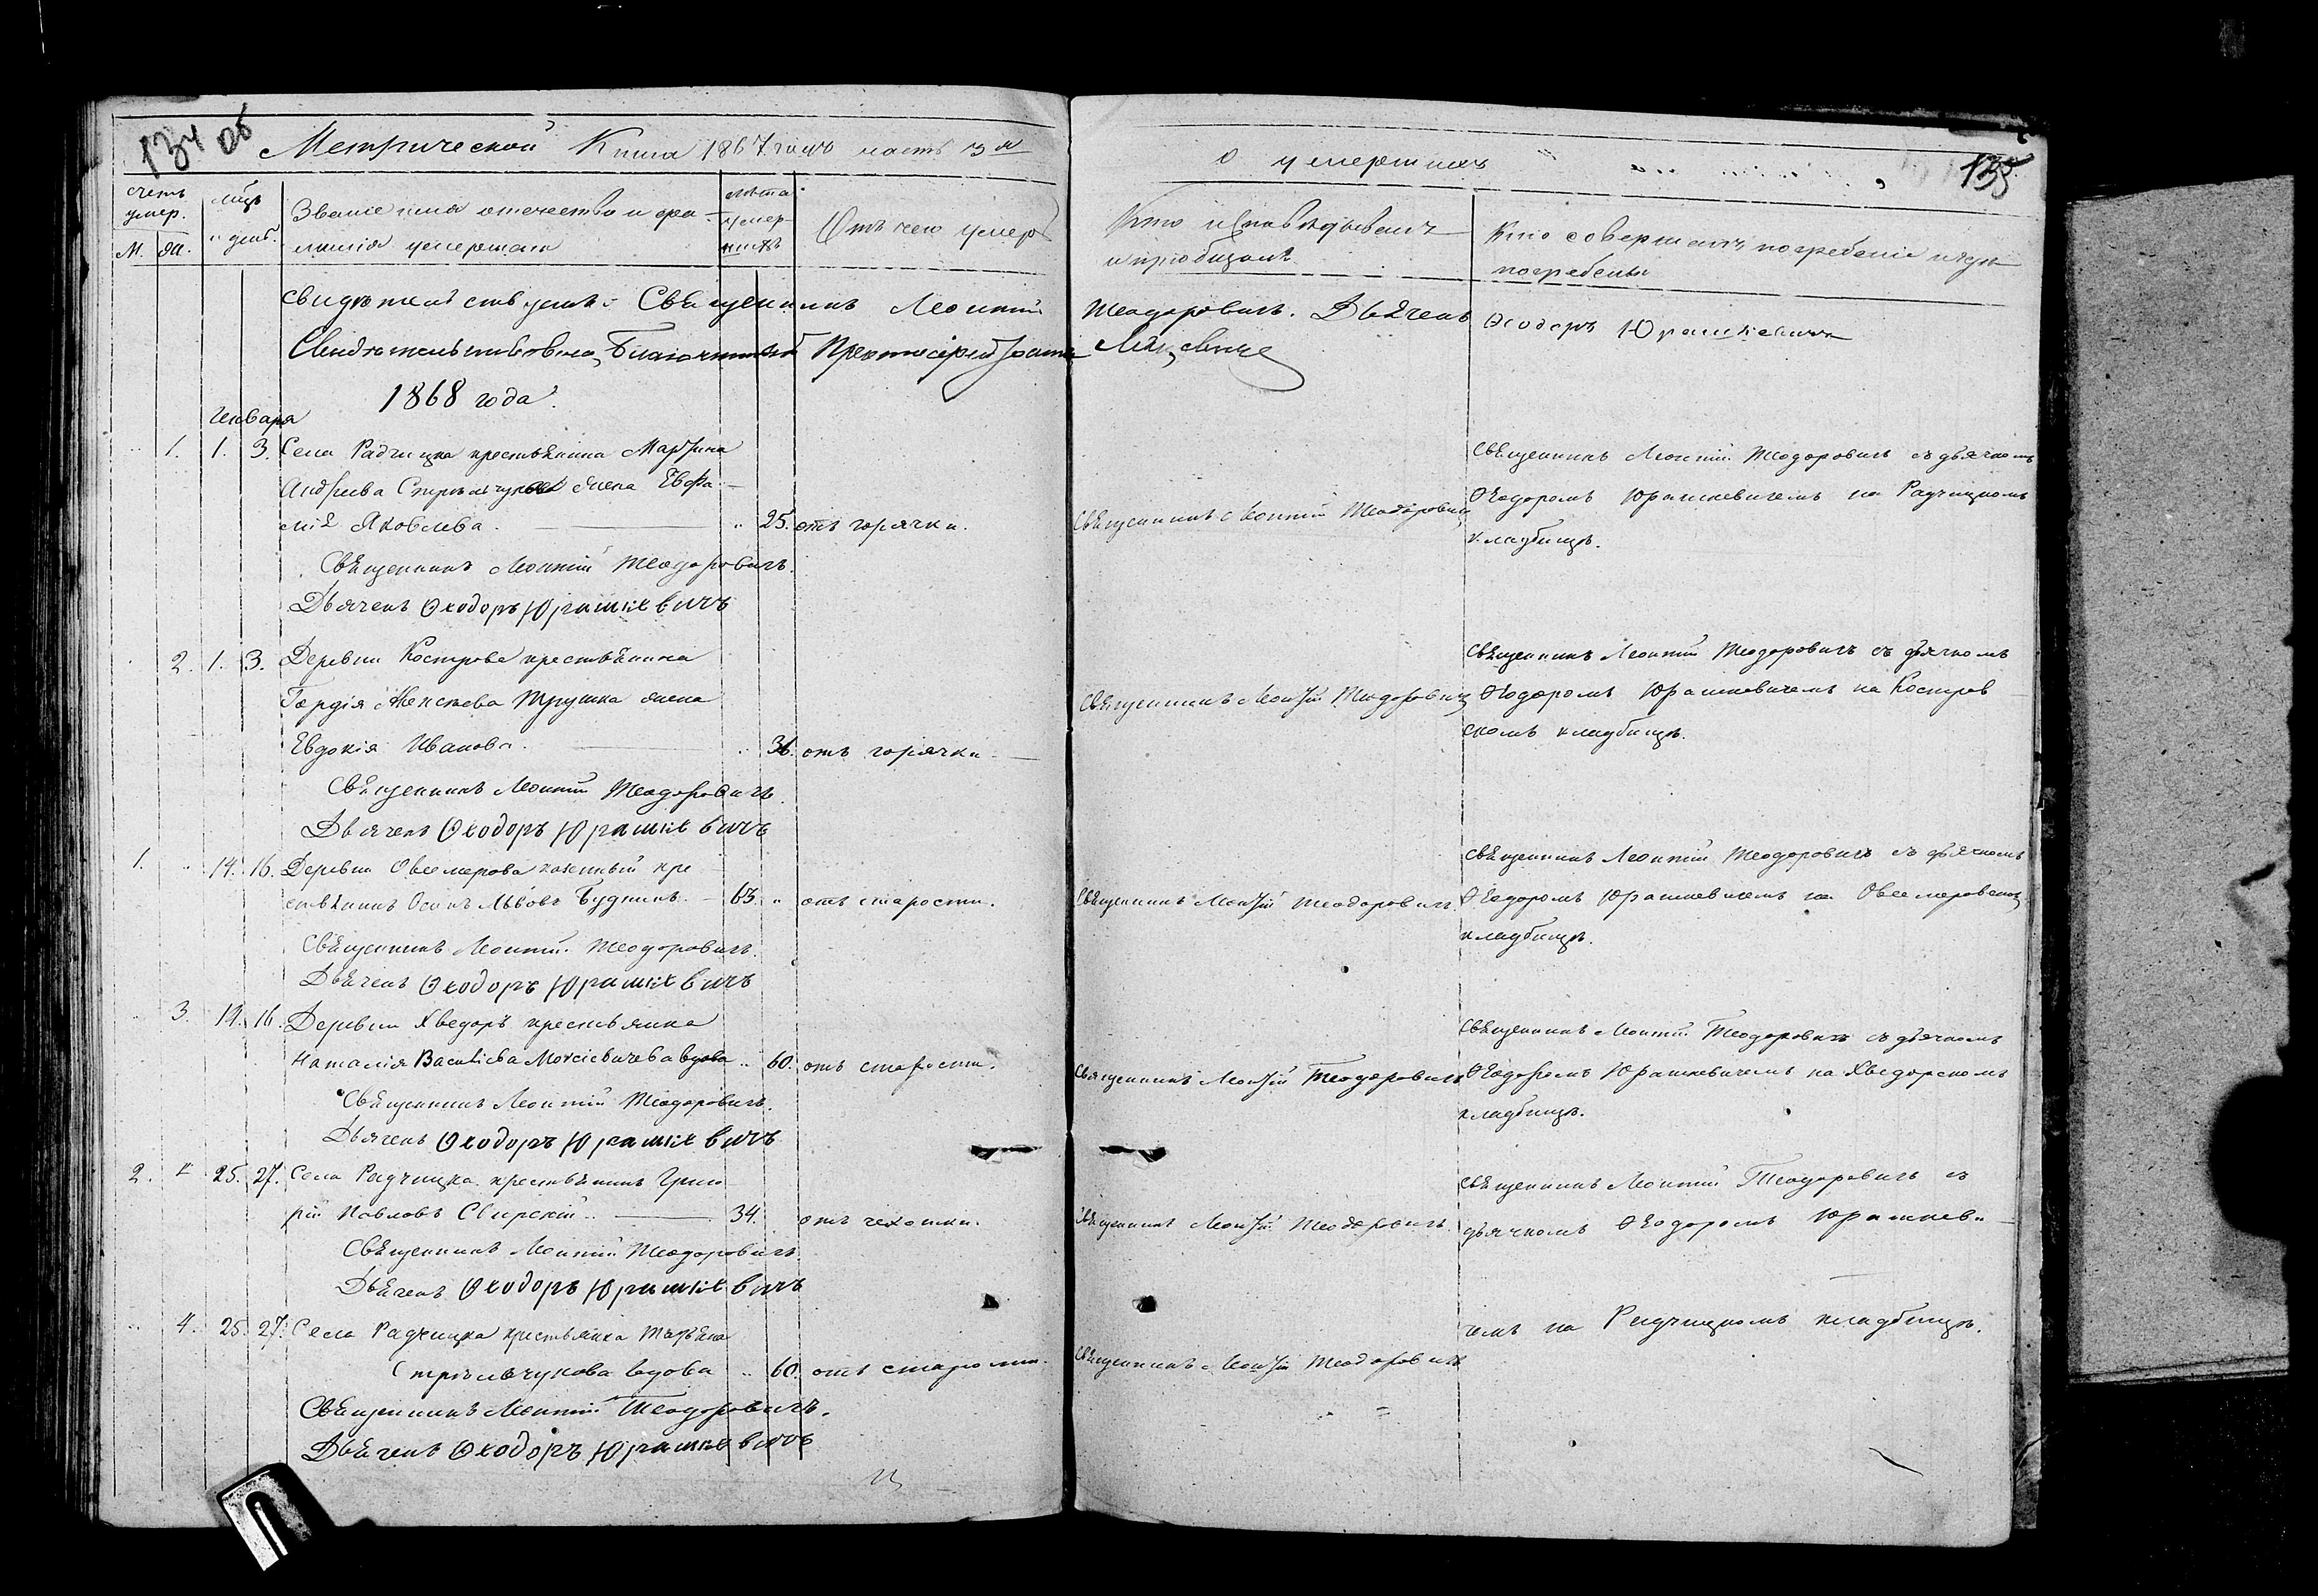 134 об
Метрической Книги 1867 года часть 3я
о умершихъ
135
счетъ умер.
М. Ж.
мѣс. и день
Званіе имя отечество и фамилія умершаго
лѣта умершихъ
Отъ чего умеръ
Кто исповѣдывалъ и пріобщалъ
Кто совершалъ погребеніе и гдѣ погребены
свидѣтельствуемъ: Священникъ Леонтій Теодоровичъ. Дьячекъ Ѳеодоръ Юрашкевичъ
Свидѣтельствовалъ, Благочинный Протоіерей
1868 года.
Генваря
1. 1. 3. Села Радчицка крестьянина Мартина
Андреева жена Евфи-
мія Яковлева. 25. отъ горячки. Священникъ Леонтій Теодоровичъ
Священникъ Леонтій Теодоровичъ съ дьячкомъ
Ѳеодоромъ Юрашкевичемъ на Радчицкомъ
кладбищѣ.
Священникъ Леонтій Теодоровичъ.
Дьячекъ Ѳеодоръ Юрашкевичъ
2. 1. 3. Деревни Кострова крестьянина
Гордія Трушка жена
Евдокія Иванова. 36. отъ горячки Священникъ Леонтій Теодоровичъ
Священникъ Леонтій Теодоровичъ съ дьячкомъ
Ѳеодоромъ Юрашкевичемъ на Костров
скомъ кладбищѣ.
Священникъ Леонтій Теодоровичъ.
Дьячекъ Ѳеодоръ Юрашкевичъ
1. 14. 16. Деревни Овсемерова казенный кре
стьянинъ Осипъ Львовъ Будникъ. 65. отъ старости. Священникъ Леонтій Теодоровичъ
Священникъ Леонтій Теодоровичъ съ дьячкомъ
Ѳеодоромъ Юрашкевичемъ на Овсемеровском
кладбищѣ.
Священникъ Леонтій Теодоровичъ.
Дьячекъ Ѳеодоръ Юрашкевичъ
3. 14. 16. Деревни Хведоръ крестьянка
Наталія Васильева Моисіевичева вдова 60. отъ старости. Священникъ Леонтій Теодоровичъ
Священникъ Леонтій Теодоровичъ съ дьячкомъ
Ѳеодоромъ Юрашкевичемъ на Хведорскомъ
кладбищѣ.
Священникъ Леонтій Теодоровичъ.
Дьячекъ Ѳеодоръ Юрашкевичъ
2. 25. 27. Села Радчицка крестьянинъ Григо
рій Павловъ Свирскій 34. отъ чехотки. Священникъ Леонтій Теодоровичъ.
Священникъ Леонтій Теодоровичъ съ
дьячкомъ Ѳеодоромъ Юрашкеви-
Священникъ Леонтій Теодоровичъ.
Дьячекъ Ѳеодоръ Юрашкевичъ
чемъ на Радчицкомъ кладбищѣ.
4. 25. 27. Села Радчицка крестьянка Татьяна
Стрѣльчукова вдова 60. отъ старости. Священникъ Леонтій Теодоровичъ
Священникъ Леонтій Теодоровичъ.
Дьячекъ Ѳеодоръ Юрашкевичъ